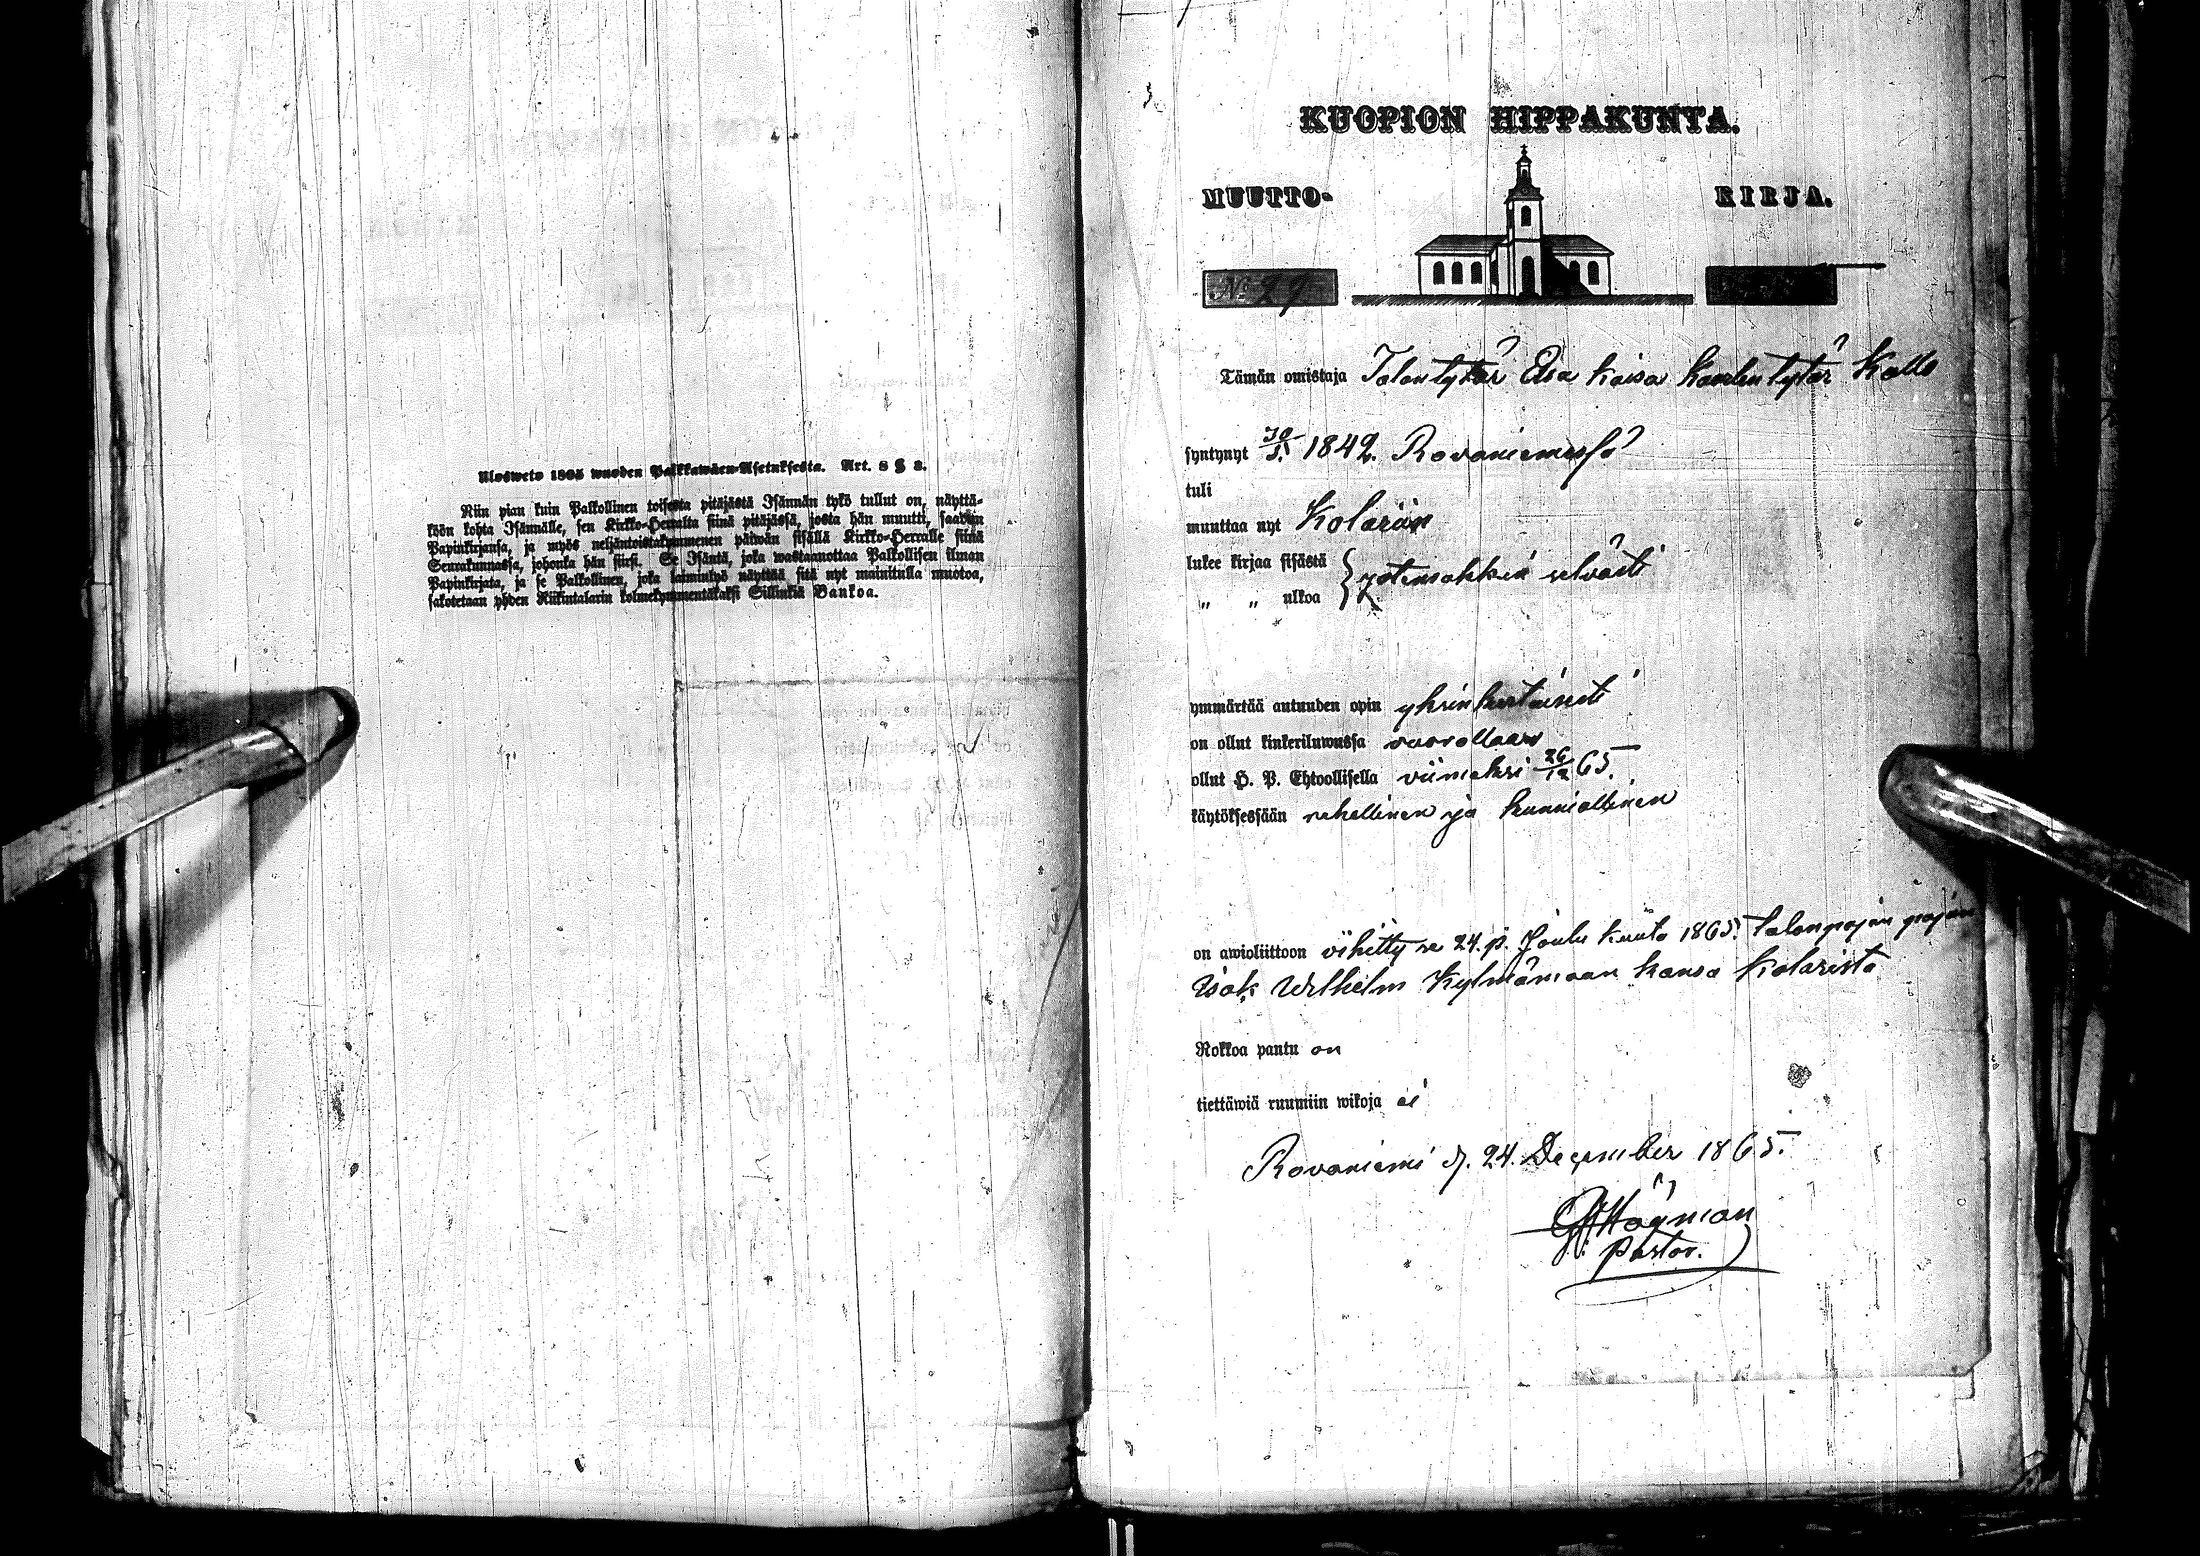 Ulosweto 1805 wuoden Palkkawäen-Asetuksesta. Art. 8 § 3.
Niin pian kuin Palkollinen toisesta pitäjästä Isännän tykö tullut on, näyttä-
köön kohta Isännälle, sen Kirkko-Herralta siinä pitäjässä, josta hän muutti, saadun
Papinkirjansa, ja myös neljäntoistakymmenen päiwän sisällä Kirkko-Herralle siinä
Seurakunnassa, johonka hän siirsi. Se Isäntä, joka wastaanottaa Palkollisen ilman
Papinkirjata, ja se Palkollinen, joka laiminlyö näyttää sitä nyt mainitulla muotoa,
sakotetaan yhden Riikintalarin kolmekymmentäkaksi Sillinkiä Bankoa.
KUOPION HIPPAKUNTA.
MUUTTO- KIRJA.
No 29
Tämän omistaja Talontytär Elsa Kaisa Kaarlentytär Kallo
syntynyt 1842. Rovaniemessä
tuli
muuttaa nyt Kolariin
lukee kirjaa sisästä
" " ulkoa selvästi
ymmärtää autuuden opin yksinkertaisesti
on ollut kinkeriluwussa vuorollaan
ollut H. P. Ehtoollisella viimeksi 26/12 65.
käytöksessään rehellinen ja kunniallinen
on awioliittoon vihitty se 24. p. Joulu kuuta 1865. talonpojan pojan
Isak Wilhelm Kylmämaan kansa Kolarista
Rokkoa pantu on
tiettäwiä ruumiin wikoja ei
Rovaniemi d. 24. December 1865.
Högman
Pastor.